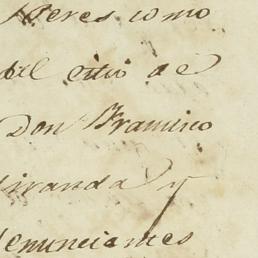 Heres como
del citio de
Don Francisco
Miranda y
denunciantes